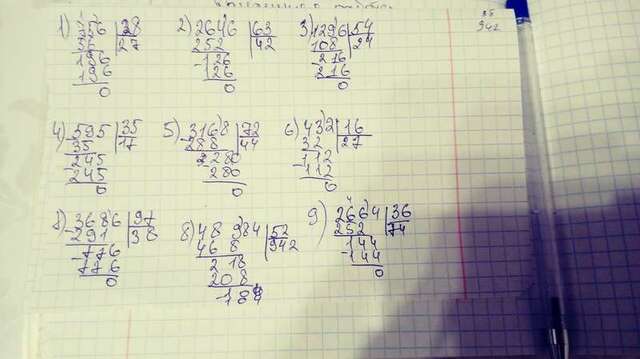 1) 756 28
56 27
196
196
0
2) 2646 63
252 42
126
126
0
3) 1296 54
108 24
216
216
0
35
942
4) 595 35
35 17
245
245
0
5) 3168 72
288 44
280
280
0
6) 432 16
32 27
112
112
0
7) 3686 97
291 38
776
776
0
8) 48 984 52
468 942
218
208
9) 2664 36
252 74
144
144
0